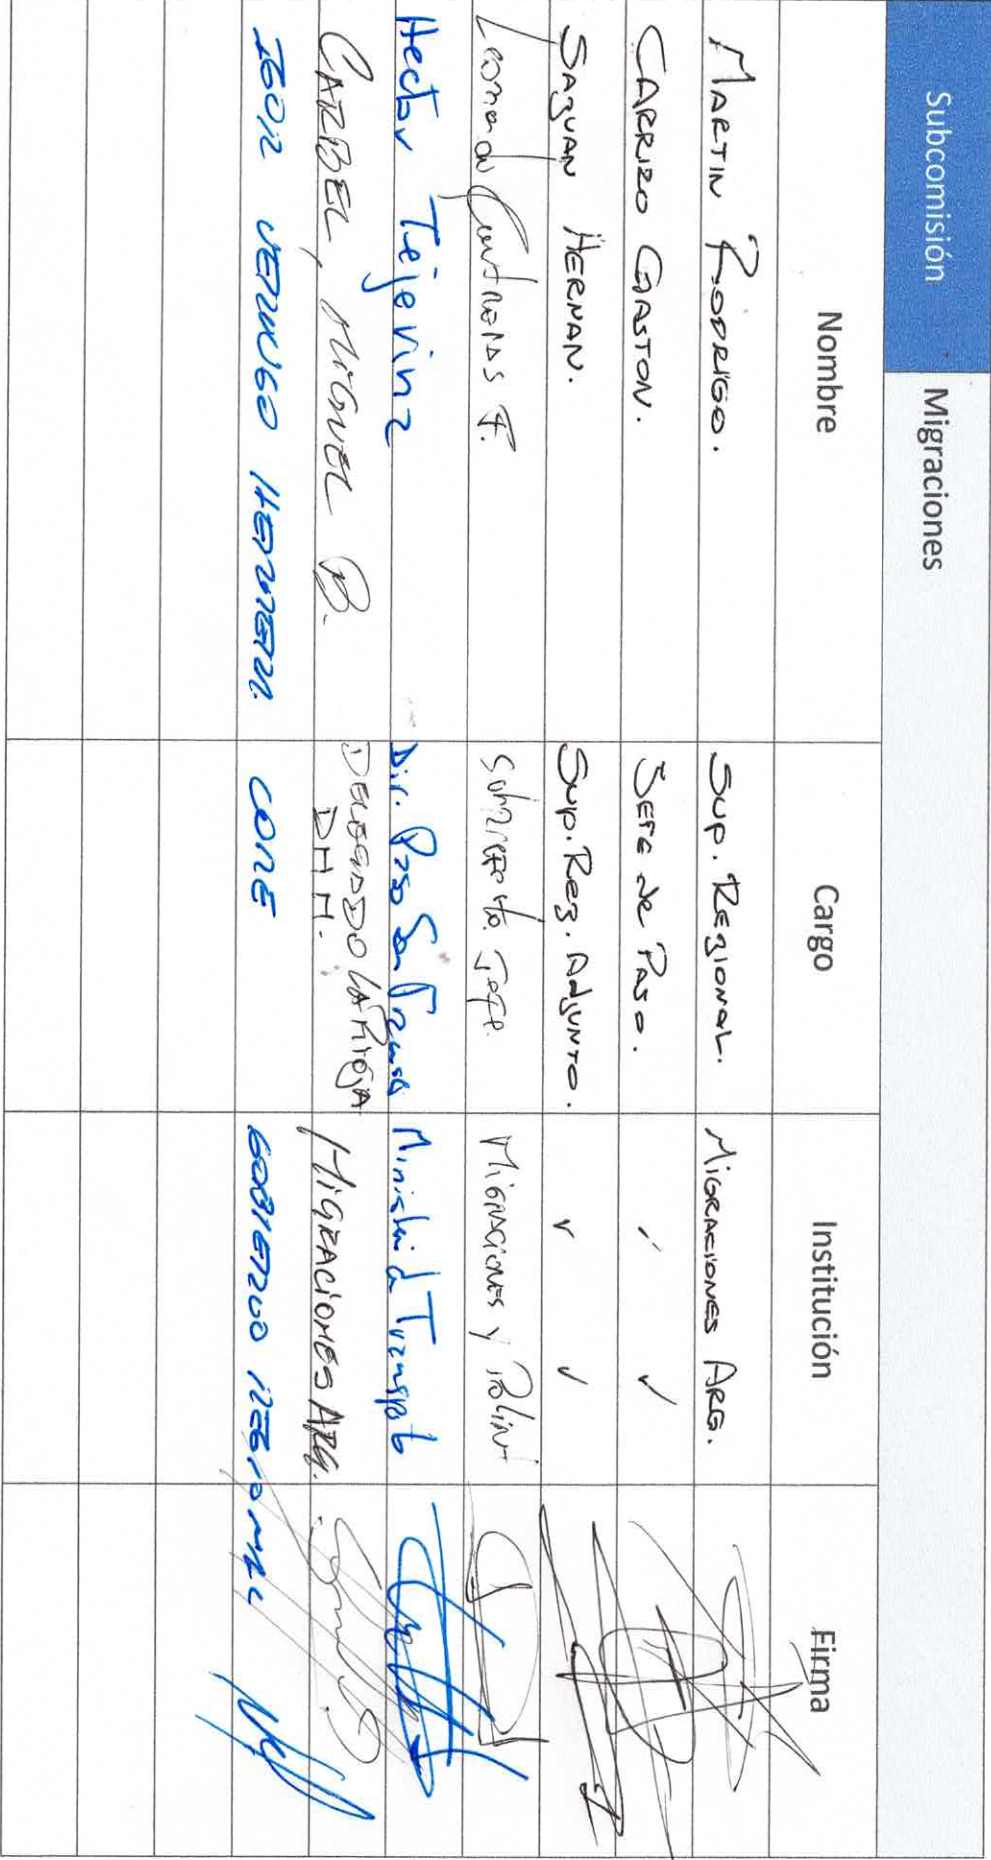 Subcomisión Migraciones
Nombre Cargo Institución Firma
MARTIN RODRIGO. SUP. REGIONAL. MIGRACIONES ARG.
CARRIZO GASTON. JEFE de PASO. ✓ ✓
SAGUAN HERNAN. SUP. REG. AdJUNTO. ✓ ✓
Leonardo Contreras F. Jefe. Migraciones y
Hector Tejerina Dir. Paso San Ministerio de Transporte
CARBEL, MIGUEL B. DELEGADO LA RIOJA MIGRACIONES ARG.
IGOR VERDUGO HERRERA. CORE GOBIERNO REGIONAL